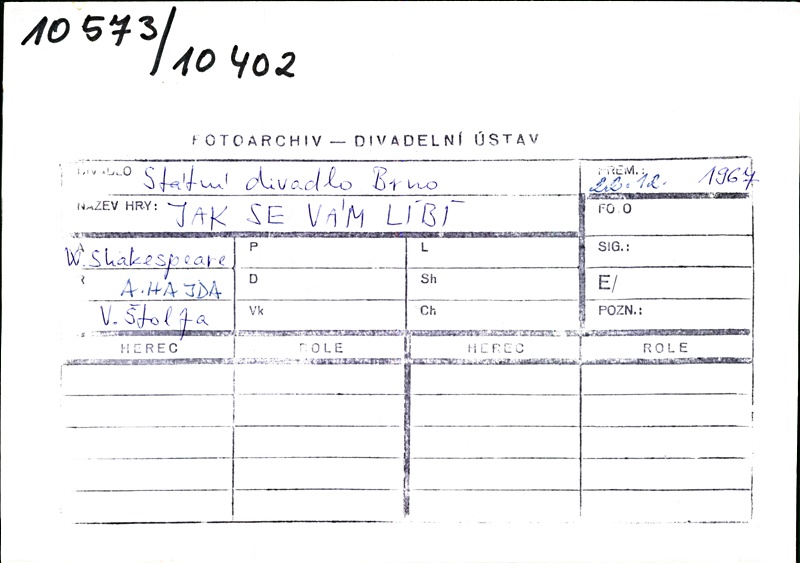 10 573/10 402
FOTOARCHIV — DIVADELNÍ ÚSTAV
DIVADLO Státní divadlo Brno
PREM.: 22. 12. 1967
NÁZEV HRY: JAK SE VÁM LÍBÍ
FOTO
A W. Shakespeare
P
L
SIG.:
R A. HAJDA
D
Sh
E/
V. Štolfa
Vk
Ch
POZN.:
HEREC ROLE HEREC ROLE